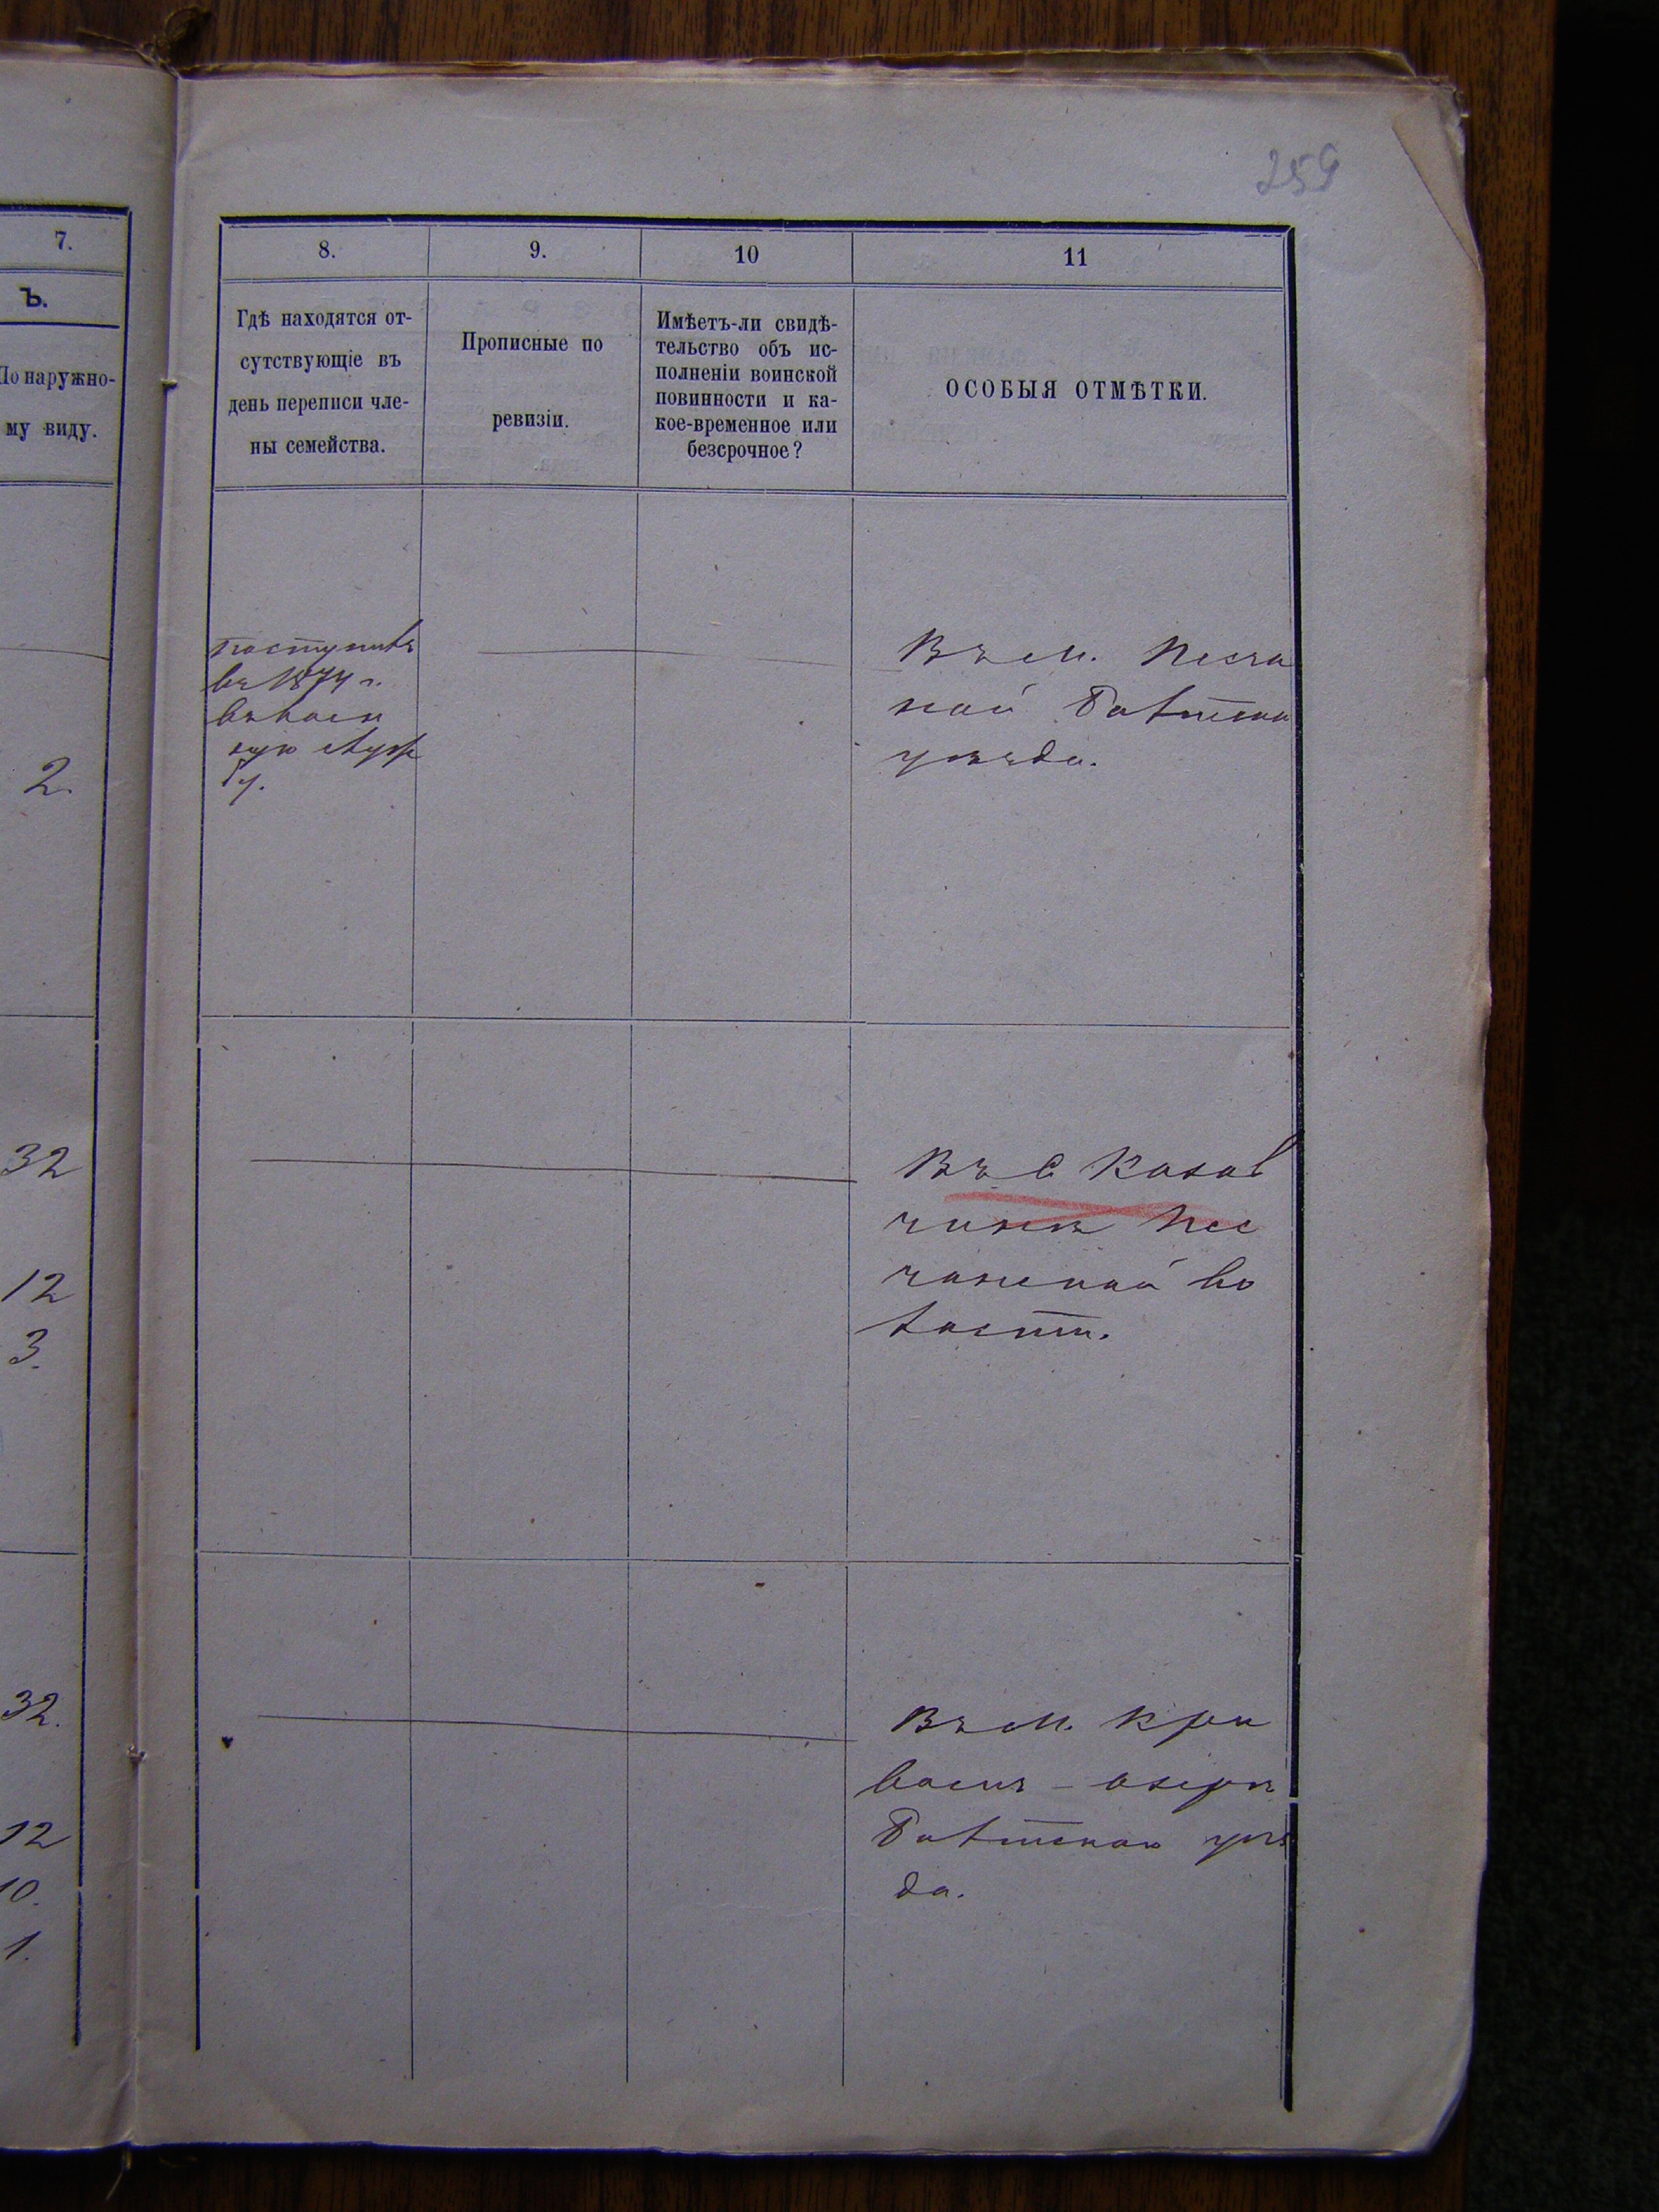 259
7.
Ъ.
По наружно-
му виду.
2.
32
12
3.
32.
12
10.
1.
8.
9.
10
11
Гдѣ находятся от-
сутствующіе въ
день переписи чле-
ны семейства.
Прописные по
ревизіи.
Имѣетъ-ли свидѣ-
тельство объ ис-
полненіи воинской
повинности и ка-
кое-временное или
безсрочное?
ОСОБЫЯ ОТМѢТКИ.
поступилъ
въ 1874 г.
въ воен
ную служ
бу.
Въ м. Песча
ной Балтскаго
уѣзда.
Въ С Казав
чинѣ Пес
чанской во
лости.
Въ м. Кри
вомъ-озерѣ
Балтскаго уѣз
да.